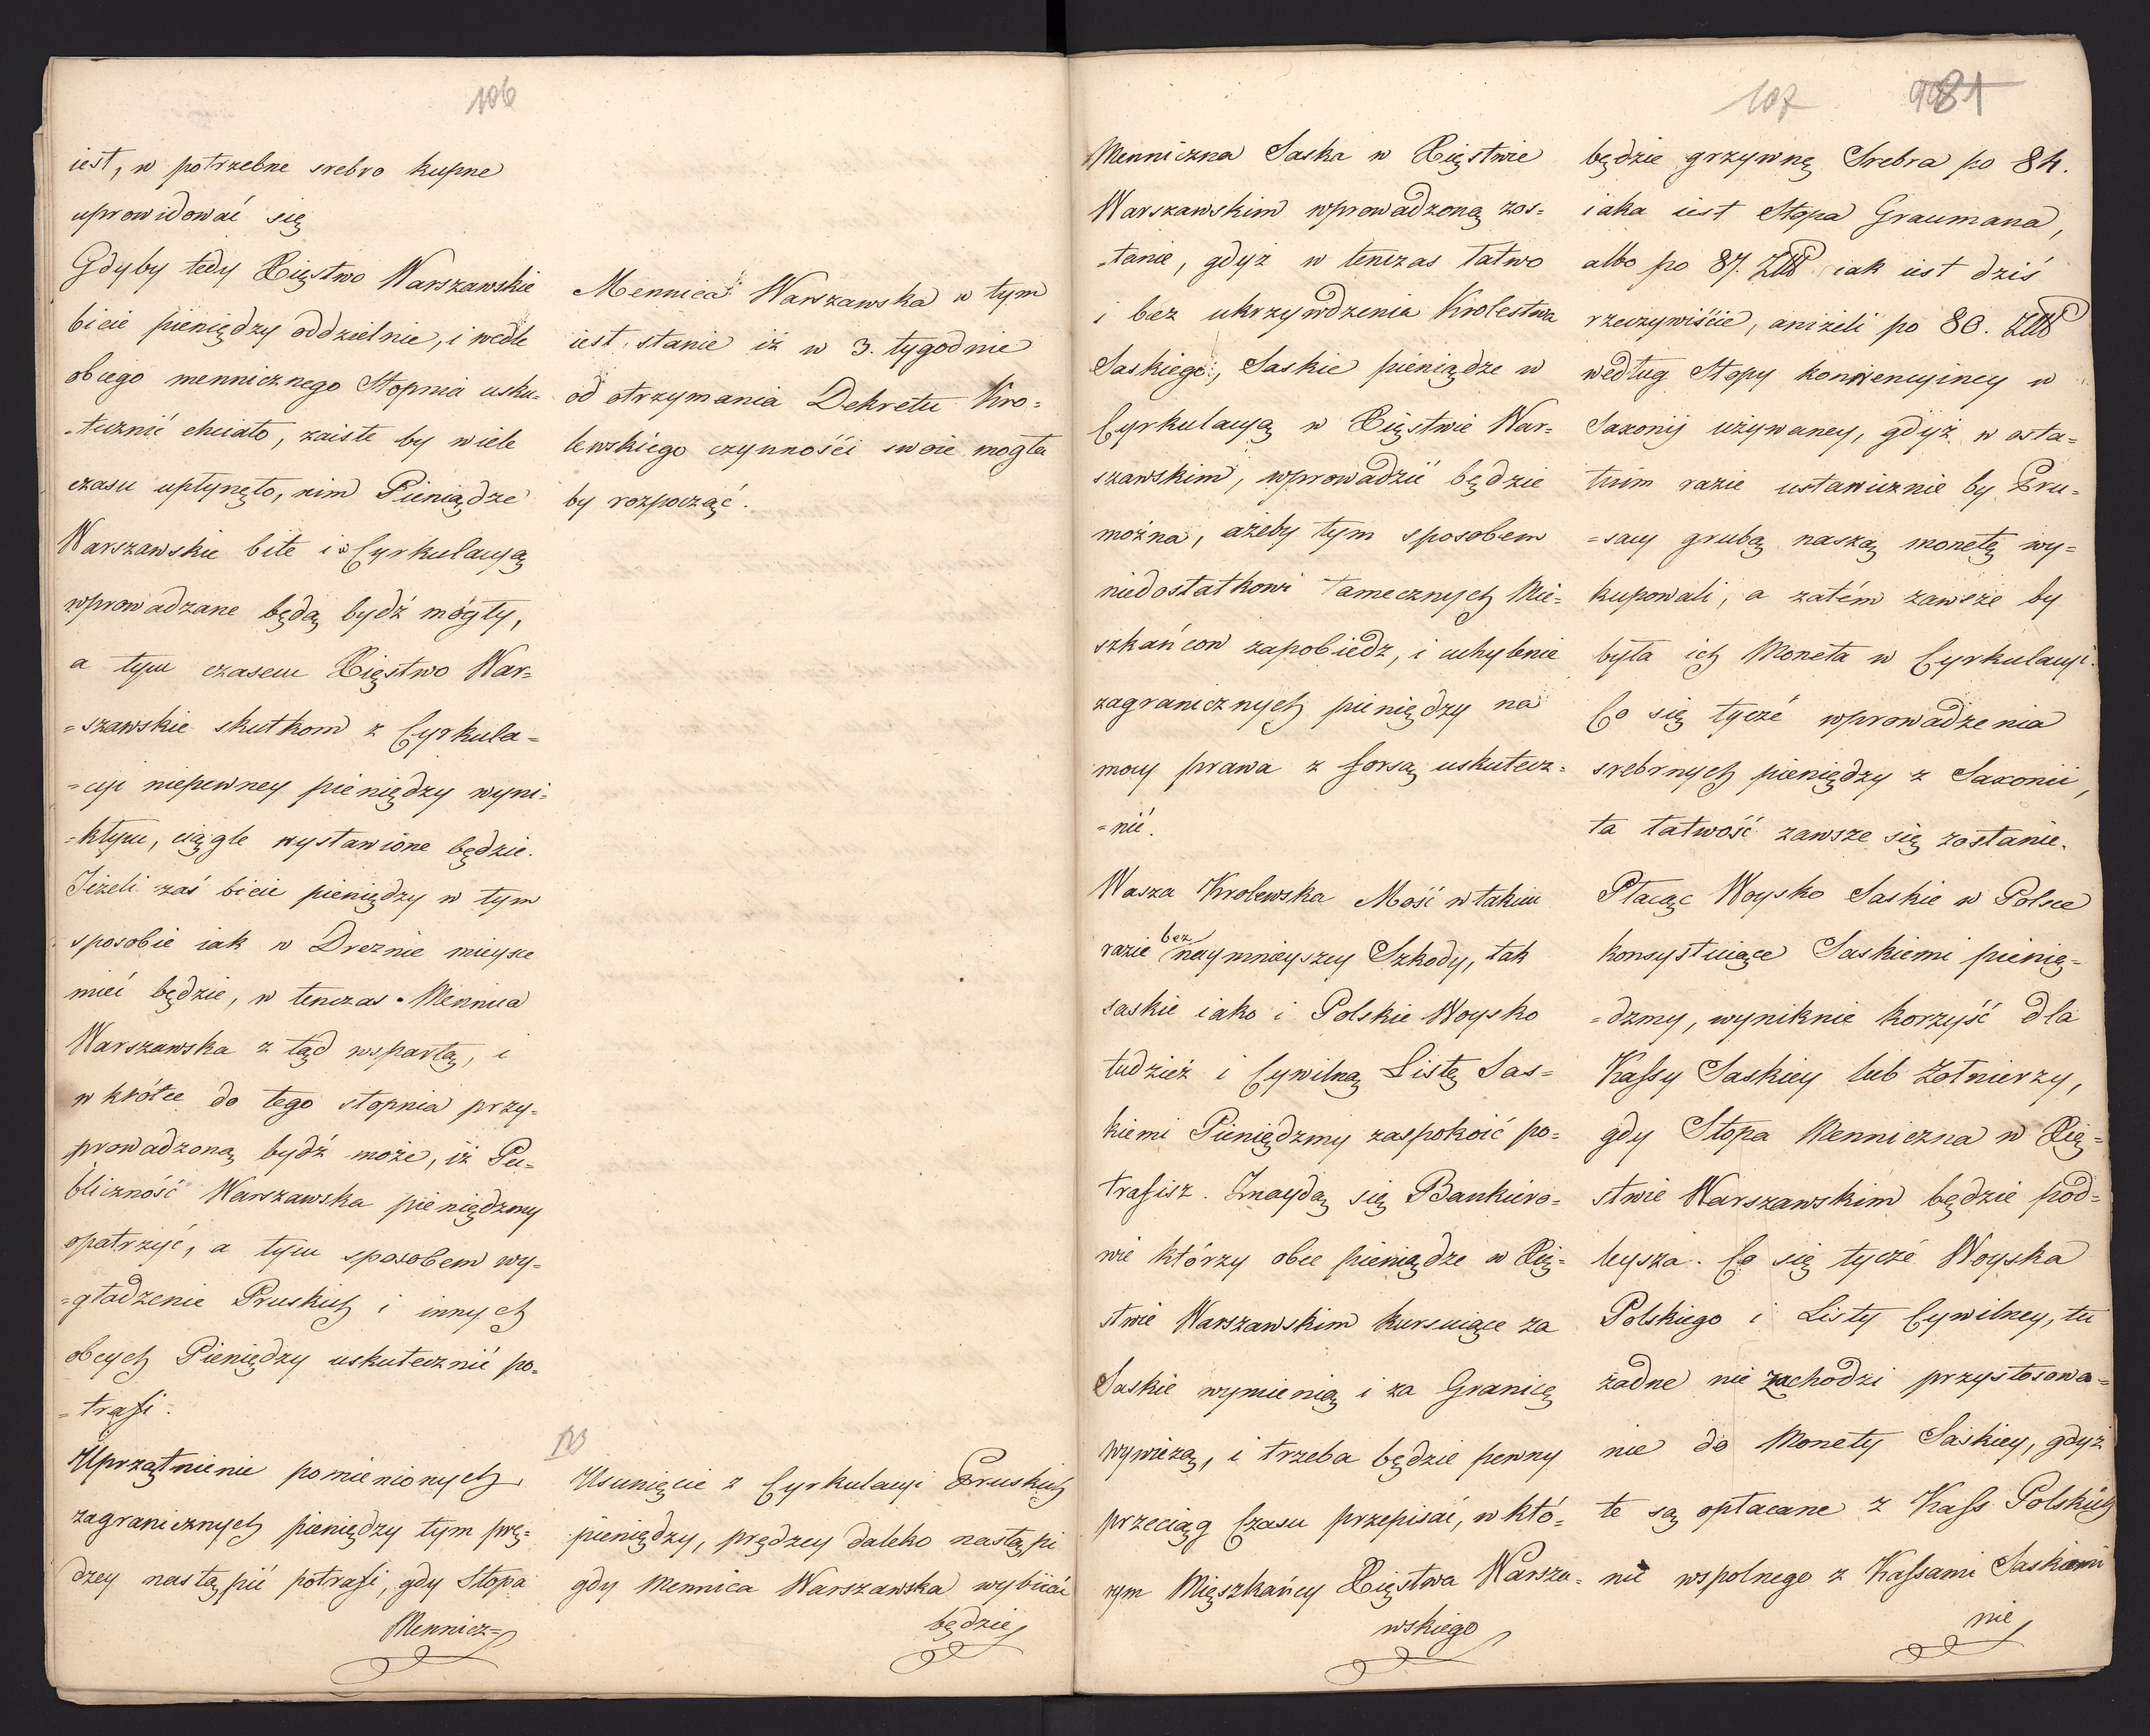 106
iest, w potrzebne srebro kupne
uprowidować się
Gdyby tedy Xięstwo Warszawskie
bicie pieniędzy oddzielnie, i wedle
obcego mennicznego Stopnia usku=
=tecznić chciało, zaiste by wiele
czasu upłynęło, nim Pieniądze
Warszawskie bite i w Cyrkulacyą
wprowadzane będą bydź mogły,
a tym czasem Xięstwo War=
=szawskie skutkom z Cyrkula=
=cyi niepewney pieniędzy wyni=
=kłym, ciągle wystawione będzie.
Jeżeli zaś bicie pieniędzy w tym
sposobie iak w Dreznie mieysce
mieć będzie, w tenczas Mennica
Warszawska z tąd wspartą, i
w krótce do tego stopnia przy=
prowadzoną bydź może, iż Pu=
bliczność Warszawska pieniędzmy
opatrzyć, a tym sposobem wy=
=gładzenie Pruskich i innych
obcych Pieniędzy uskutecznić po=
=trafi.
Uprzątnienie pomienionych
zagranicznych pieniędzy tym prę=
dzey nastąpić potrafi, gdy Stopa
Mennicz=
Mennica Warszawska w tym
iest stanie iż w 3. tygodnie
od otrzymania Dekretu Kro=
lewskiego czynnośći swoie mogła
by rozpocząć.
Usunięcie z Cyrkulacyi Pruskich
pieniędzy, prędzey daleko nastąpi
gdy Mennica Warszawska wybiiać
będzie
107 81
Menniczna Saska w Xięstwie
Warszawskim wprowadzoną zos=
=tanie, gdyż w tenczas łatwo
i bez ukrzywdzenia Krolestwa
Saskiego, Saskie pieniądze w
Cyrkulacyą w Xięstwie War=
szawskim, wprowadzić będzie
można, ażeby tym sposobem
niedostatkowi tamecznych Mie=
szkańcow zapobiedz, i uchybnie
zagranicznych pieniędzy na
mocy prawa z forsą uskutecz=
=nić.
Wasza Krolewska Mość w takim
razie bez naymnieyszey Szkody, tak
saskie iako i Polskie Woysko
tudzież i Cywilną Listę Sas=
kiemi Pieniędzmy zaspokoić po=
trafisz. Znaydą się Bankiero=
wie którzy obce pieniądze w Xię=
stwie Warszawskim kursuiące za
Saskie wymienią i za Granicę
wywiezą, i trzeba będzie pewny
przeciąg Czasu przepisać, w któ=
rym Mięszkańcy Xięstwa Warsza=
wskiego
będzie grzywnę Srebra po 84.
iaka iest Stopa Graumana,
albo po 87. Złł iak iest dziś
rzeczywiście, aniżeli po 80. Złł
według Stopy konwencyiney w
Saxonij używaney, gdyż w osta=
tnim razie ustawicznie by Pru=
=sacy grubą naszą monetę wy=
kupowali, a zatém zawsze by
była ich Moneta w Cyrkulacyi.
Co się tyczé wprowadzenia
srebrnych pieniędzy z Saxonii,
ta łatwość zawsze się zostanie.
Płacąc Woysko Saskie w Polsce
konsystuiące Saskiemi pienię=
=dzmy, wyniknie korzyść dla
Kassy Saskiey lub Żołnierzy,
gdy Stopa Menniczna w Xię=
stwie Warszawskim będzie pod=
leysza. Co się tyczé Woyska
Polskiego i Listy Cywilney, tu
żadne nie zachodzi przystosowa=
nie do Monety Saskiey, gdyż
te są opłacane z Kass Polskich
nic wspolnego z Kassami Saskiemi
nie